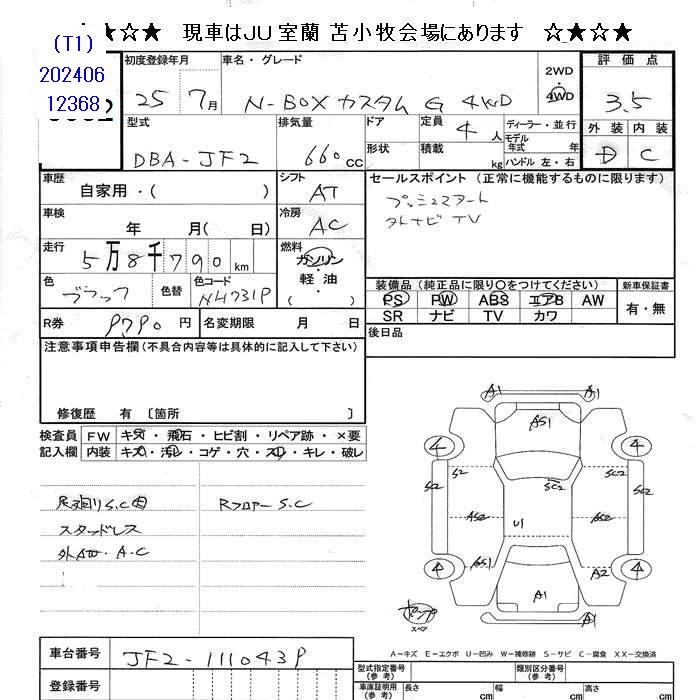 ★☆★ 現車はJU室蘭 苫小牧会場にあります ☆★☆★
(T1)
202406
12368
初度登録年月
25 7月
車名・グレード
N-BOX カスタム G 4WD
2WD
4WD
評価点
3.5
外装 内装
D C
型式
DBA-JF2
排気量
660 cc
ドア
形状
定員 4 人
積載 kg
ディーラー・並行
モデル年式 年
ハンドル 左・右
車歴
自家用・( )
シフト
AT
セールスポイント (正常に機能するものに限ります)
プッシュスタート
外ナビ TV
車検
年 月( 日)
冷房
AC
走行
5万8千790 km
燃料
ガソリン
軽油
( )
色
ブラック
色替
色コード
NH731P
装備品(純正品に限り○をつけてください)
PS PW ABS エアB AW
SR ナビ TV カワ
新車保証書
有・無
R券 9790 円
名変期限 月 日
後日品
注意事項申告欄(不具合内容等は具体的に記入して下さい)
修復歴 有 〔箇所 〕
検査員記入欄
FW キズ・飛石・ヒビ割・リペア跡・×要
内装 キズ・汚レ・コゲ・穴・スレ・キレ・破レ
Rフロアー S.C
スタッドレス
A1 A1
AS1
4 4
S2 S2
SC2 SC2 SC2
AS2 U1 AS2
AS1 A2
4 4
A1
A1
スペア
A-キズ E-エクボ U-凹み W-補修跡 S-サビ C-腐食 XX-交換済
車台番号
JF2-1110439
登録番号
型式指定番号
(参考)
類別区分番号
(参考)
車庫証明用
(参考)
長さ cm
幅 cm
高さ cm